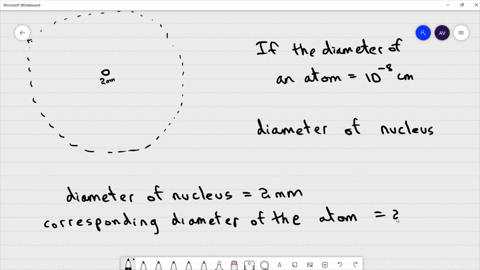 Microsoft Whiteboard
AV
2cm
If the diameter of
an atom = 10⁻⁸ cm
diameter of nucleus
diameter of nucleus = 2 mm
corresponding diameter of the atom = ?